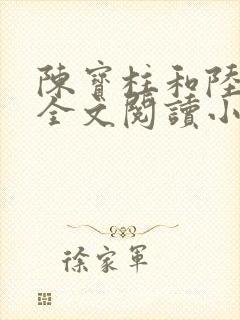 陳寶柱和陸
全文閱讀小
徐家軍